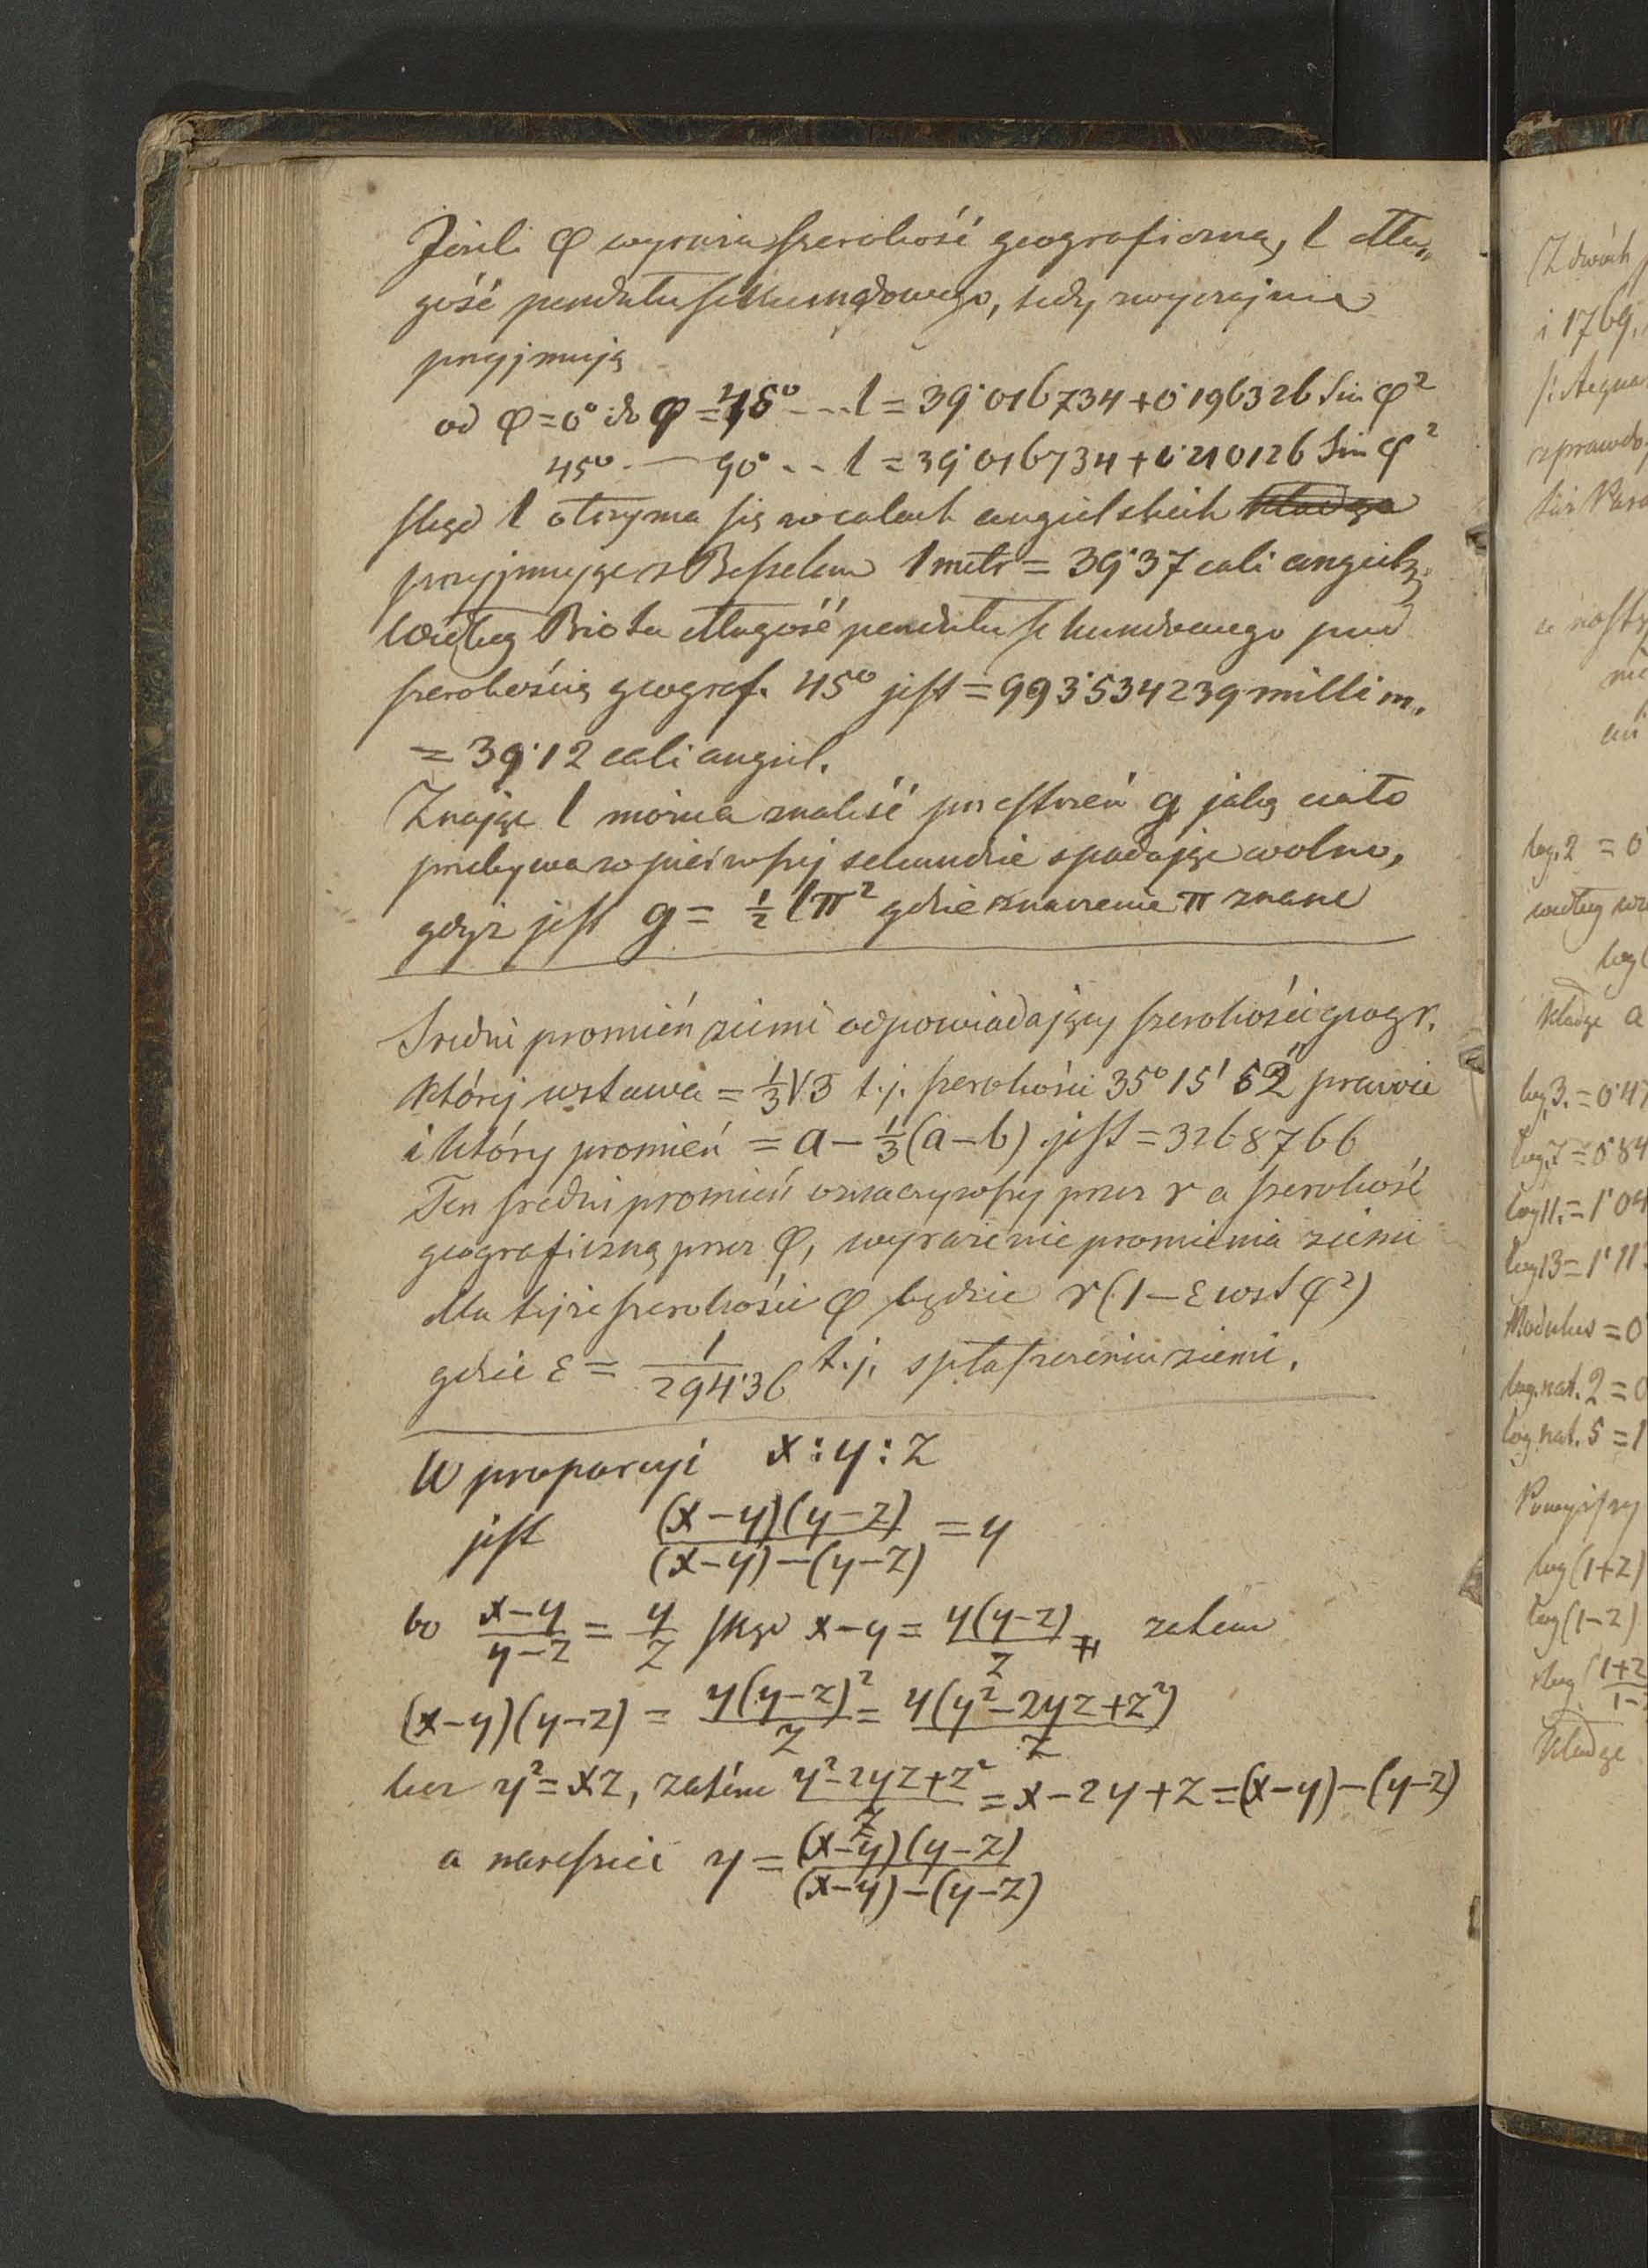 Jeżeli φ wyraża szerokość geograficzną, l dłu„
gość pendułu sekundowego, tedy zwyczajnie
przyjmują
od φ=0° do φ=45° ... l = 39·016734+0·196326 Sin φ²
45° — 90° .. l = 39·016734+0·210126 Sin φ²
skąd l otrzyma się w calach angielskich
przyjmując z Besselem 1 metr = 39·37 cali angiels.
Według Biota długość pendułu sekundowego pod
szerokością geograf. 45° jest = 993·534239 millim.
= 39·12 cali angiel.
Znając l można znaleść przestrzeń g jaką ciało
przebywa w pierwszej sekundzie spadając wolno,
gdyż jest g = ½ lπ² gdzie znaczenie π znane
Średni promień ziemi odpowiadający szerokości geogr.
której wstawa = ⅓√3 t.j. szerokości 35° 15′ 52″ prawie
i który promień = a − ⅓(a−b) jest = 3268766
Ten średni promień oznaczywszy przez r a szerokość
geograficzną przez φ, wyrażenie promienia ziemi
dla tejże szerokości φ będzie r(1−ε wst φ²)
gdzie ε = 1/294·36 t.j. spłaszczeniu ziemi.
W proporcyi x : y : z
jest (x−y)(y−z)/((x−y)−(y−z)) = y
bo (x−y)/(y−z) = y/z skąd x−y = y(y−z)/z zatem
(x−y)(y−z) = y(y−z)²/z = y(y²−2yz+z²)/z
lecz y²=xz, zatém (y²−2yz+z²)/z = x−2y+z=(x−y)−(y−z)
a nareszcie y = (x−y)(y−z)/((x−y)−(y−z))
Z dwóch
i 1769.
log.2 = 0
według
log
Kładąc a
log3.=0·47
log7=0·84
log11.=1·04
log13=1·11
Modulus=0
log.nat.2=0
log.nat.5=1
log(1+z)
log(1−z)
log(1+z/1−
Kładąc